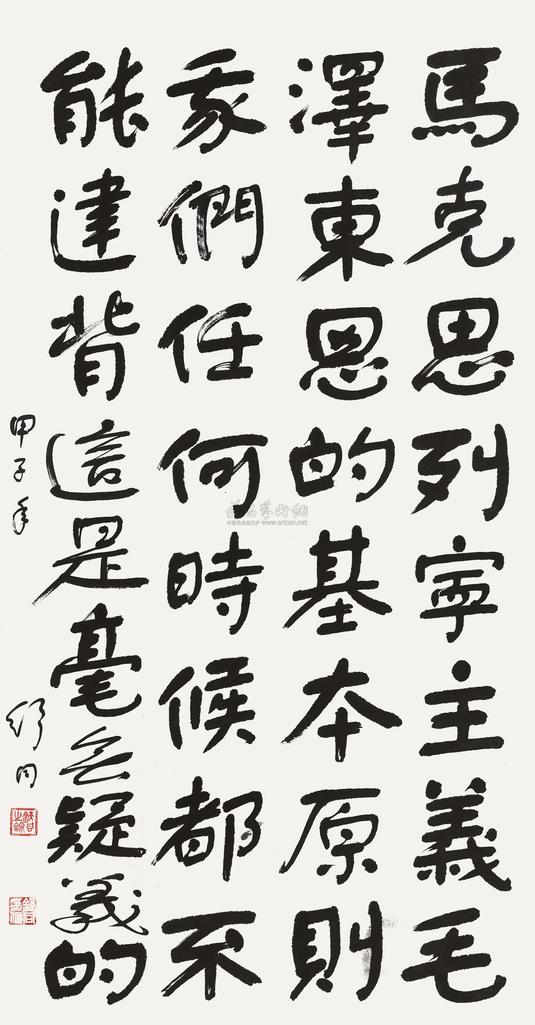 馬克思列寧主義毛
澤東恩的基本原則
我們任何時候都不
能違背這是毫無疑義的
甲子年
舒同
www.artron.net